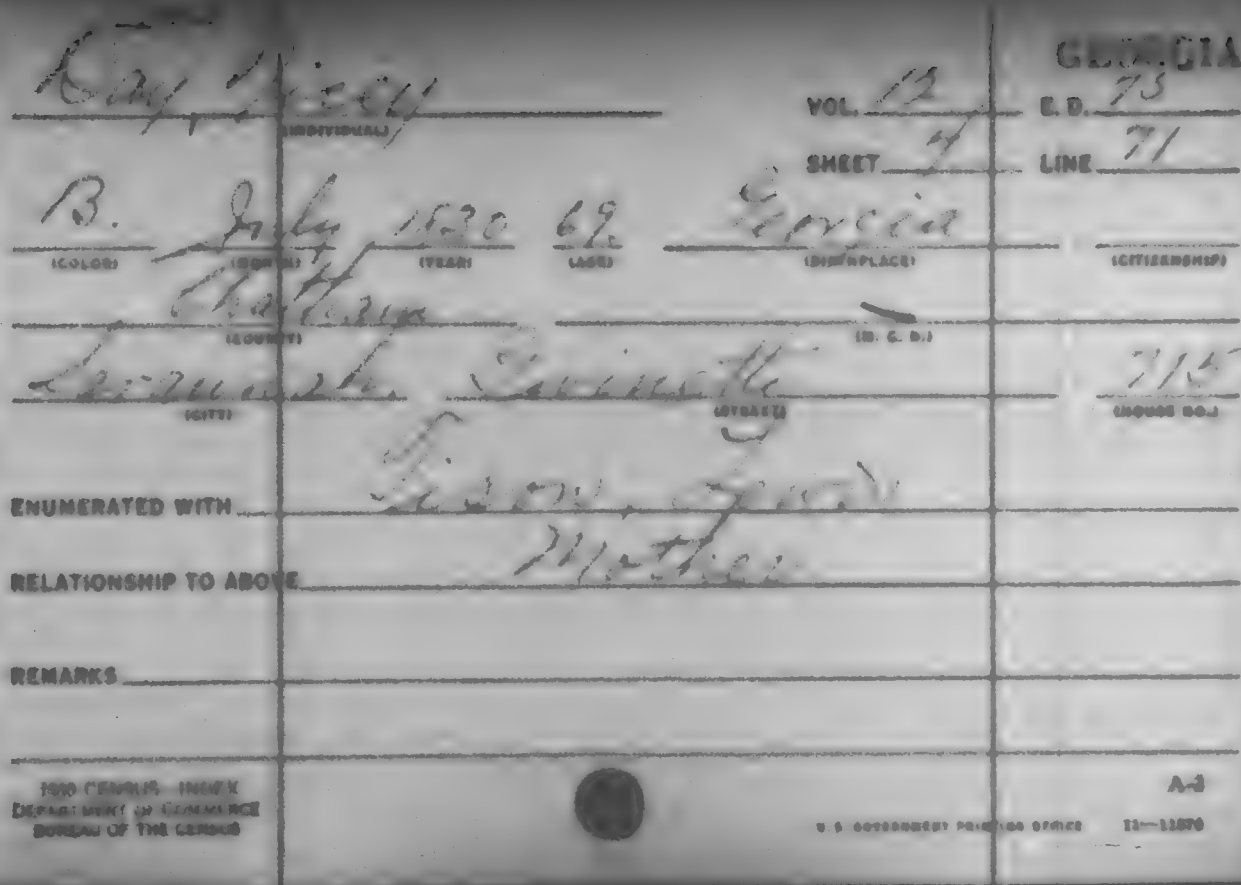 GEORGIA
Day,
(INDIVIDUAL)
VOL. 12 E. D. 75
SHEET 4 LINE 71
B. July 1830 69 Georgia
(COLOR) (MONTH) (YEAR) (AGE) (BIRTHPLACE) (CITIZENSHIP)
Chatham
(COUNTY) (M. C. D.)
Savannah 715
(CITY) (STREET) (HOUSE NO.)
ENUMERATED WITH
RELATIONSHIP TO ABOVE Mother
REMARKS
1900 CENSUS INDEX
DEPARTMENT OF COMMERCE
BUREAU OF THE CENSUS
A-3
U. S. GOVERNMENT PRINTING OFFICE